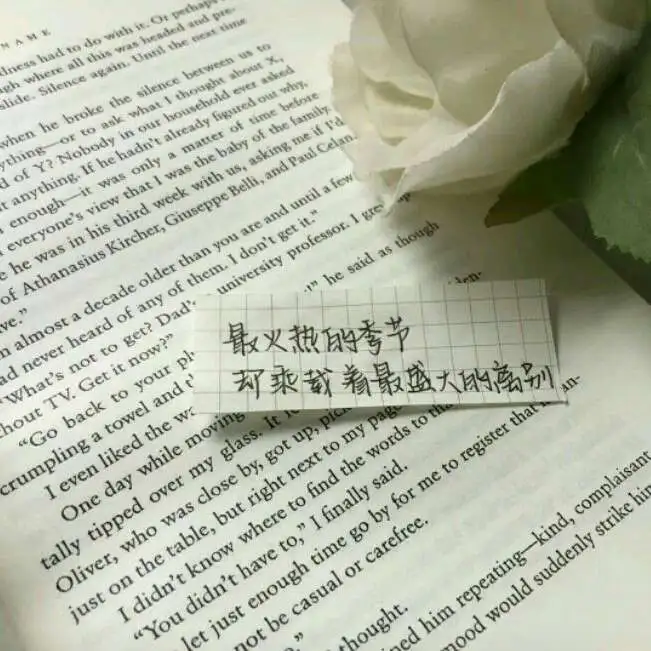 NAME
dness had to do with it. Or perhaps
ugh where all this was headed and pre-
slide. Silence again. Until the next time
when he broke the silence between us to
ything—or to ask what I thought about X,
d of Y? Nobody in our household ever asked
t anything. If he hadn't already figured out why,
enough—it was only a matter of time before
everyone's view that I was the baby of the family.
e he was in his third week with us, asking me if I'd
of Athanasius Kircher, Giuseppe Belli, and Paul Celan.
ve."
m almost a decade older than you are and until a few
ad never heard of any of them. I don't get it."
"What's not to get? Dad's university professor. I grew up
hout TV. Get it now?"
"Go back to your pl he said as though
crumpling a towel and t
I even liked the w
One day while moving
tally tipped over my glass. It
Oliver, who was close by, got up, pic
just on the table, but right next to my page
I didn't know where to find the words to th
"You didn't have to," I finally said.
let just enough time go by for me to register that
not be casual or carefree.
thought.
ned him repeating—kind, complaisant
mood would suddenly strike him
最火热的季节
却乘载着最盛大的离别